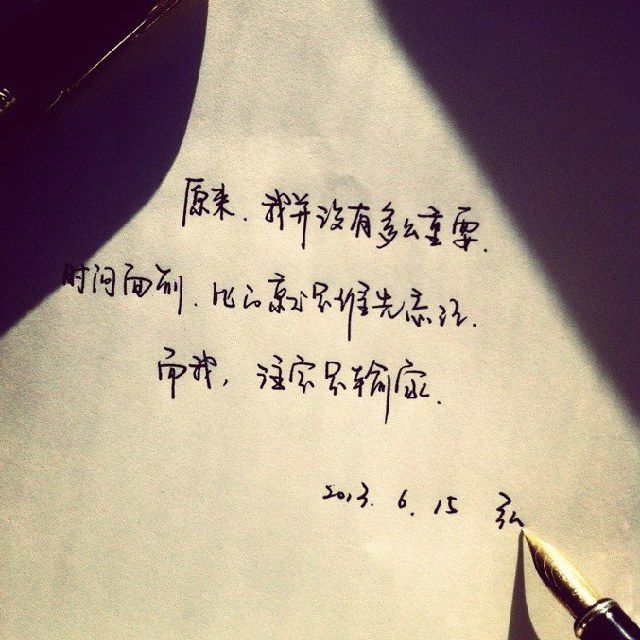 原来.我并没有多么重要.
时间面前.比的就是谁先忘记.
而我,注定是输家.
2013.6.15 弘